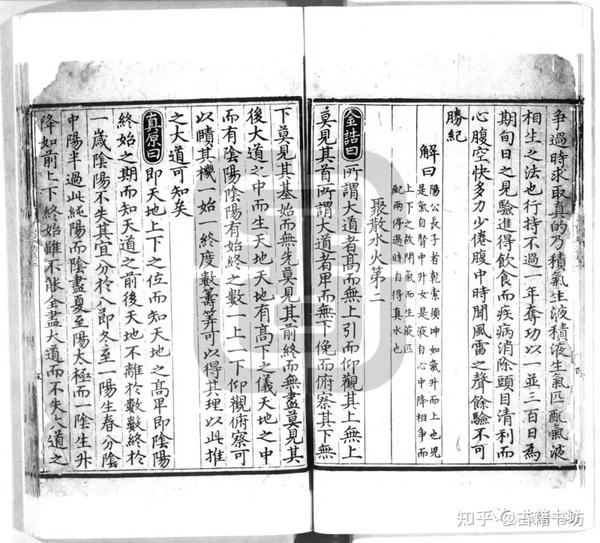 爭過時求取真的乃積氣生液積液生氣匹配氣液
相生之法也行持不過一年奪功以一並三百日為
期旬日之見驗進得飲食而疾病消除頭目清利而
心腹空快多力少倦腹中時聞風雷之聲餘驗不可
勝紀
解曰
陽公長子者乾索須坤如氣升而上也兒
是氣自腎中升女是液自心中降相爭而
上下之故閉氣而生液匹
配兩停過時自得真水也
聚散水火第二
金誥曰所謂大道者高而無上引而仰觀其上無上
莫見其首所謂大道者卑而無下俛而俯察其下無
下莫見其基始而無先莫見其前終而無盡莫見其
後大道之中而生天地天地有高下之儀天地之中
而有陰陽陰陽有始終之數一上一下仰觀俯察可
以賾其機一始一終度數籌算可以得其理以此推
之大道可知矣
真原曰即天地上下之位而知天地之高卑即陰陽
終始之期而知天道之前後天地不離於數數終於
一歲陰陽不失其宜分於八節冬至一陽生春分陰
中陽半過此純陽而陰盡夏至陽太極而一陰生升
降如前上下終始雖不能全盡大道而不失八道之
知乎 @古籍书坊